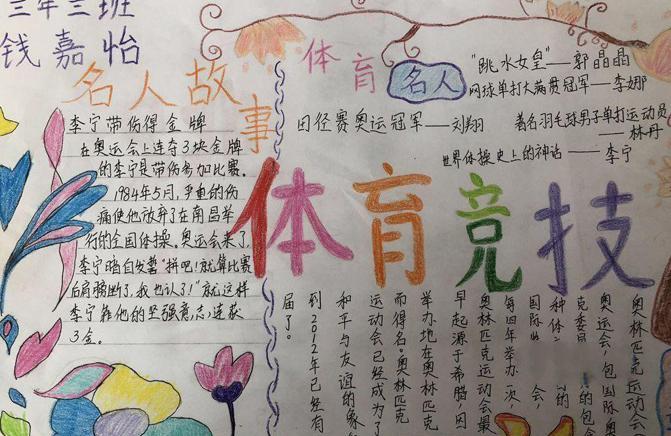 三年三班
钱嘉怡
名人故事
李宁带伤得金牌
在奥运会上连夺3块金牌
的李宁是带伤参加比赛。
1984年5月,严重的伤
痛使他放弃了在南昌举
行的全国体操。奥运会来了,
李宁暗自发誓"拼吧!就算比赛
后肩膀断了,我也认了!"就这样
李宁靠他的坚强意志,连获
3金。
体育名人
"跳水女皇"——郭晶晶
网球单打大满贯冠军——李娜
田径赛奥运冠军——刘翔
著名羽毛球男子单打运动员
——林丹
世界体操史上的神话——李宁
体育竞技
奥林匹克运动会
奥运会,包国际奥
克委员的包含
种体
国际 会,
每四年举办一次,
奥林匹克运动会最
早起源于希腊,因
举办地在奥林匹克
而得名。奥林匹克
运动会已经成为了
和平与友谊的象
到2012年已经有
届了。